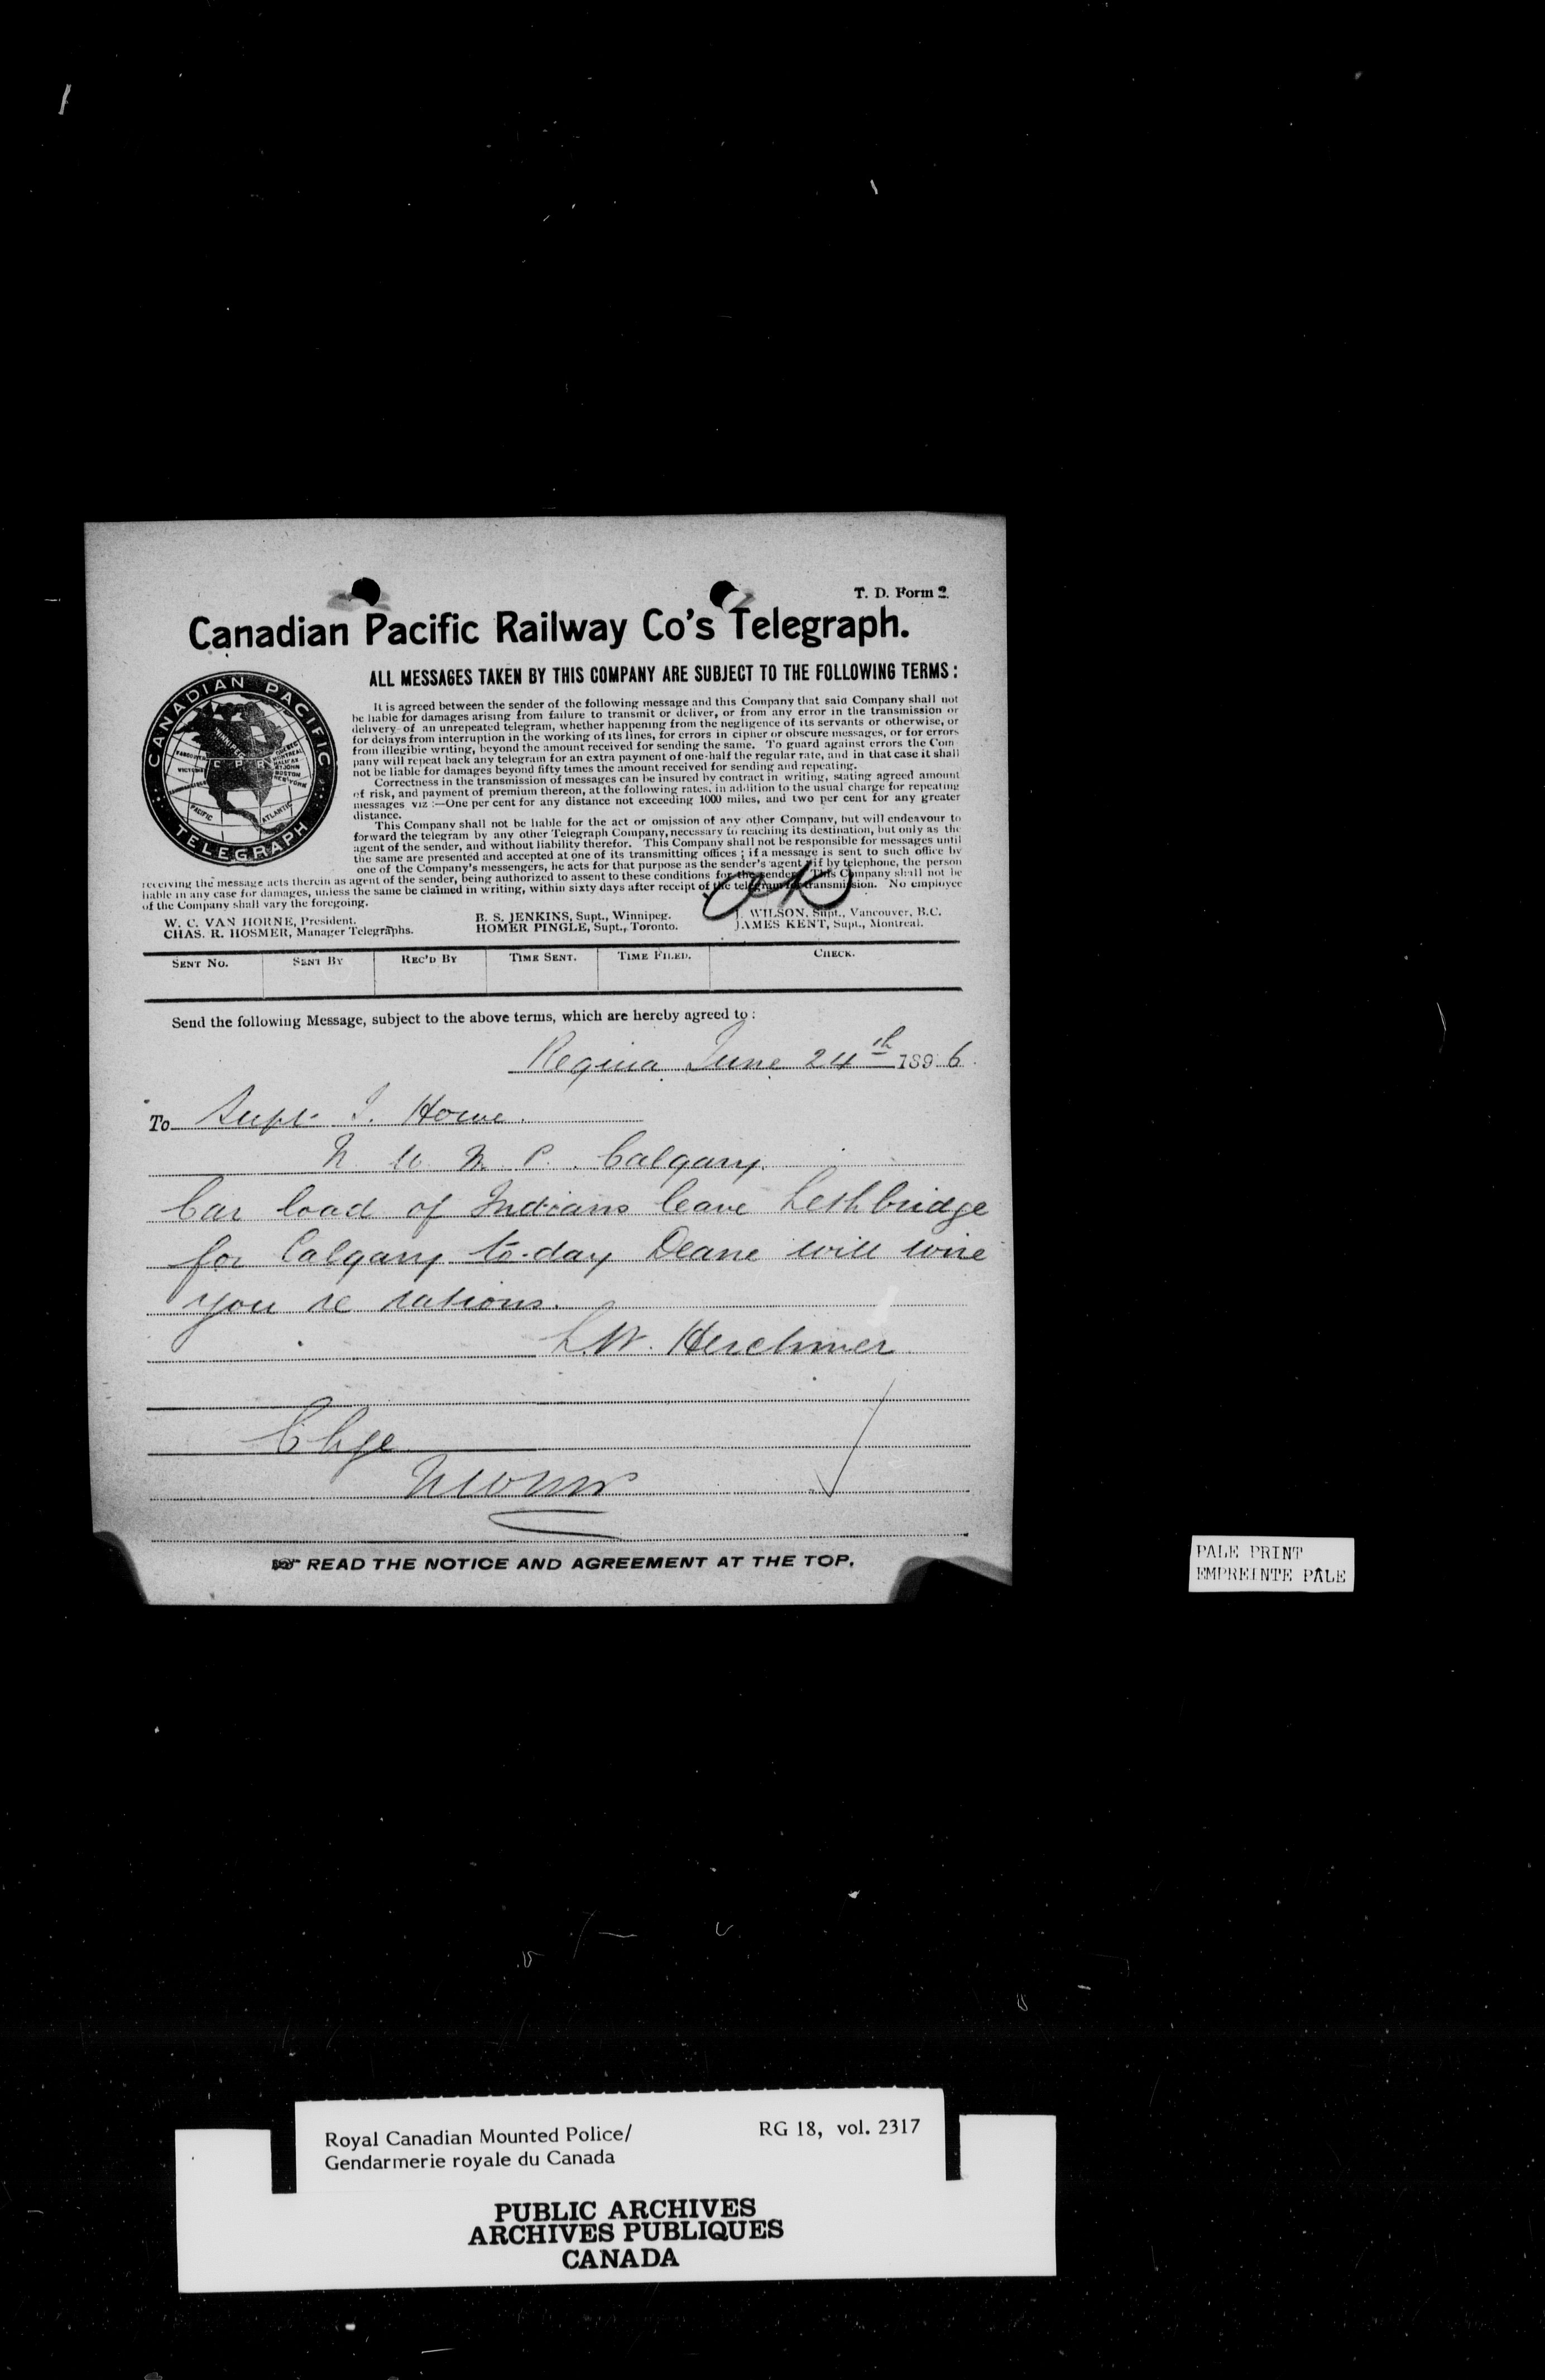 T. D. Form 2.
Canadian Pacific Railway Co's Telegraph.
ALL MESSAGES TAKEN BY THIS COMPANY ARE SUBJECT TO THE FOLLOWING TERMS:
CANADIAN PACIFIC
TELEGRAPH
WINNIPEG
VANCOUVER
VICTORIA
C P R
QUEBEC
MONTREAL
HALIFAX
ST JOHN
BOSTON
NEW YORK
PACIFIC
ATLANTIC
It is agreed between the sender of the following message and this Company that said Company shall not
be liable for damages arising from failure to transmit or deliver, or from any error in the transmission or
delivery of an unrepeated telegram, whether happening from the negligence of its servants or otherwise, or
for delays from interruption in the working of its lines, for errors in cipher or obscure messages, or for errors
from illegible writing, beyond the amount received for sending the same. To guard against errors the Com
pany will repeat back any telegram for an extra payment of one-half the regular rate, and in that case it shall
not be liable for damages beyond fifty times the amount received for sending and repeating.
Correctness in the transmission of messages can be insured by contract in writing, stating agreed amount
of risk, and payment of premium thereon, at the following rates, in addition to the usual charge for repeating
messages viz :—One per cent for any distance not exceeding 1000 miles, and two per cent for any greater
distance.
This Company shall not be liable for the act or omission of any other Company, but will endeavour to
forward the telegram by any other Telegraph Company, necessary to reaching its destination, but only as the
agent of the sender, and without liability therefor. This Company shall not be responsible for messages until
the same are presented and accepted at one of its transmitting offices ; if a message is sent to such office by
one of the Company's messengers, he acts for that purpose as the sender's agent ; if by telephone, the person
receiving the message acts therein as agent of the sender, being authorized to assent to these conditions for the sender. This Company shall not be
liable in any case for damages, unless the same be claimed in writing, within sixty days after receipt of the telegram for transmission. No employee
of the Company shall vary the foregoing.
OK
W. C. VAN HORNE, President. B. S. JENKINS, Supt., Winnipeg. J. WILSON, Supt., Vancouver, B.C.
CHAS. R. HOSMER, Manager Telegraphs. HOMER PINGLE, Supt., Toronto. JAMES KENT, Supt., Montreal.
SENT NO. SENT BY REC'D BY TIME SENT. TIME FILED. CHECK.
Send the following Message, subject to the above terms, which are hereby agreed to :
Regina June 24th 1896.
To Supt J. Howe.
N W M P. Calgary.
Car load of Indians leave Lethbridge
for Calgary to-day Deane will wire
you re rations.
L.W. Herchmer
Chge
NWMP
READ THE NOTICE AND AGREEMENT AT THE TOP.
PALE PRINT
EMPREINTE PALE
Royal Canadian Mounted Police/ RG 18, vol. 2317
Gendarmerie royale du Canada
PUBLIC ARCHIVES
ARCHIVES PUBLIQUES
CANADA